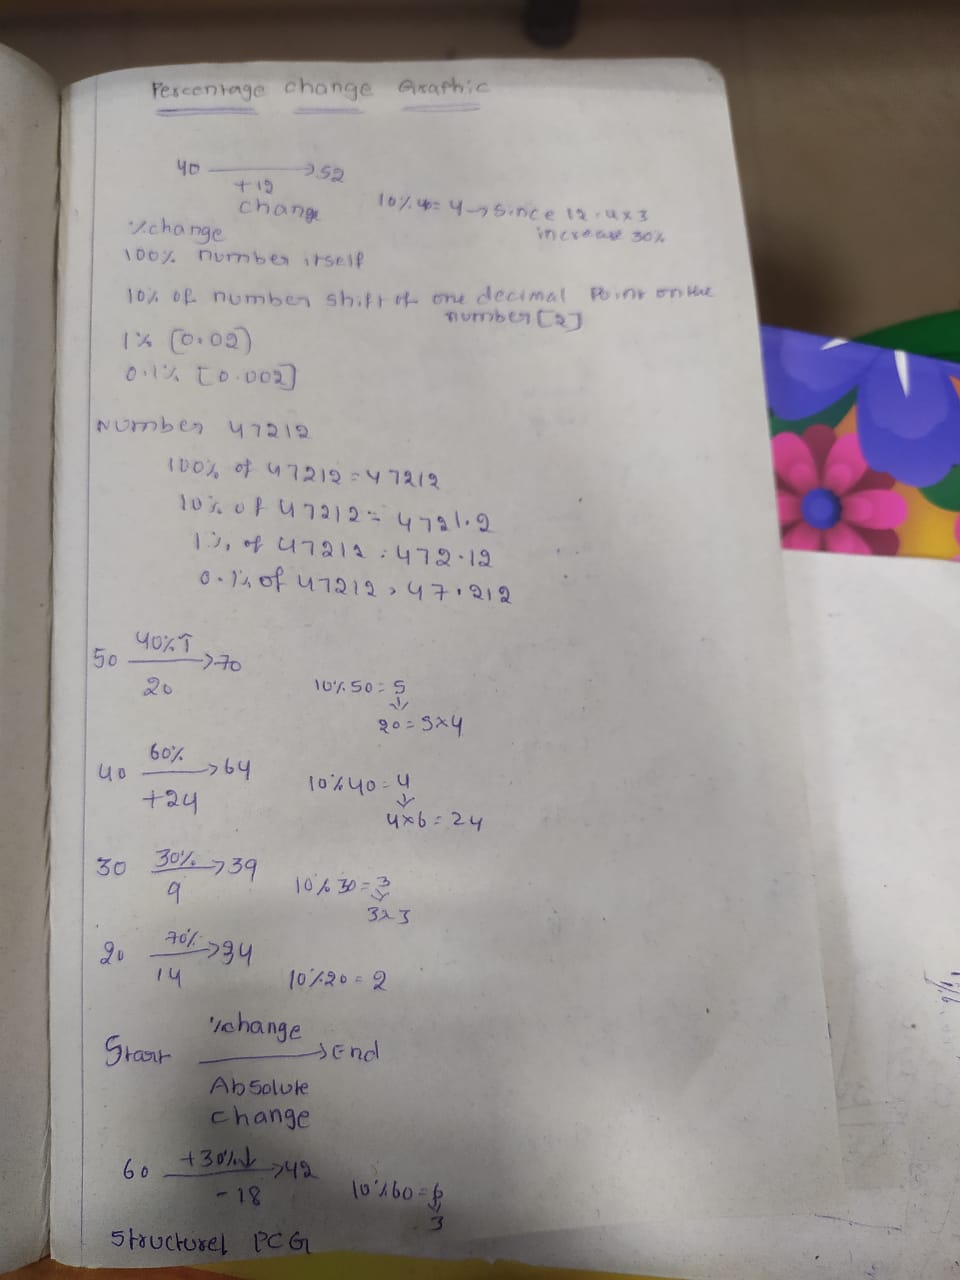 Percentage change Graphic
40 → 52
+12
change
10% 40 = 4 → since 12 = 4 x 3
increase 30%
% change
100% number itself
10% of number shift of one decimal point on the
number [2]
1% [0.02)
0.1% [0.002]
Number 47212
100% of 47212 = 47212
10% of 47212 = 4721.2
1% of 47212 = 472.12
0.1% of 47212 = 47.212
50 40%↑ → 70
20
10% 50 = 5
↓
20 = 5x4
40 60% → 64
+24
10% 40 = 4
↓
4x6 = 24
30 30% → 39
9
10% 30 = 3
↓
3x3
20 70% → 34
14
10% 20 = 2
% change
Start → End
Absolute
change
60 +30%↓ → 42
-18
10% 60 = 6
↓
3
Structurel PCG